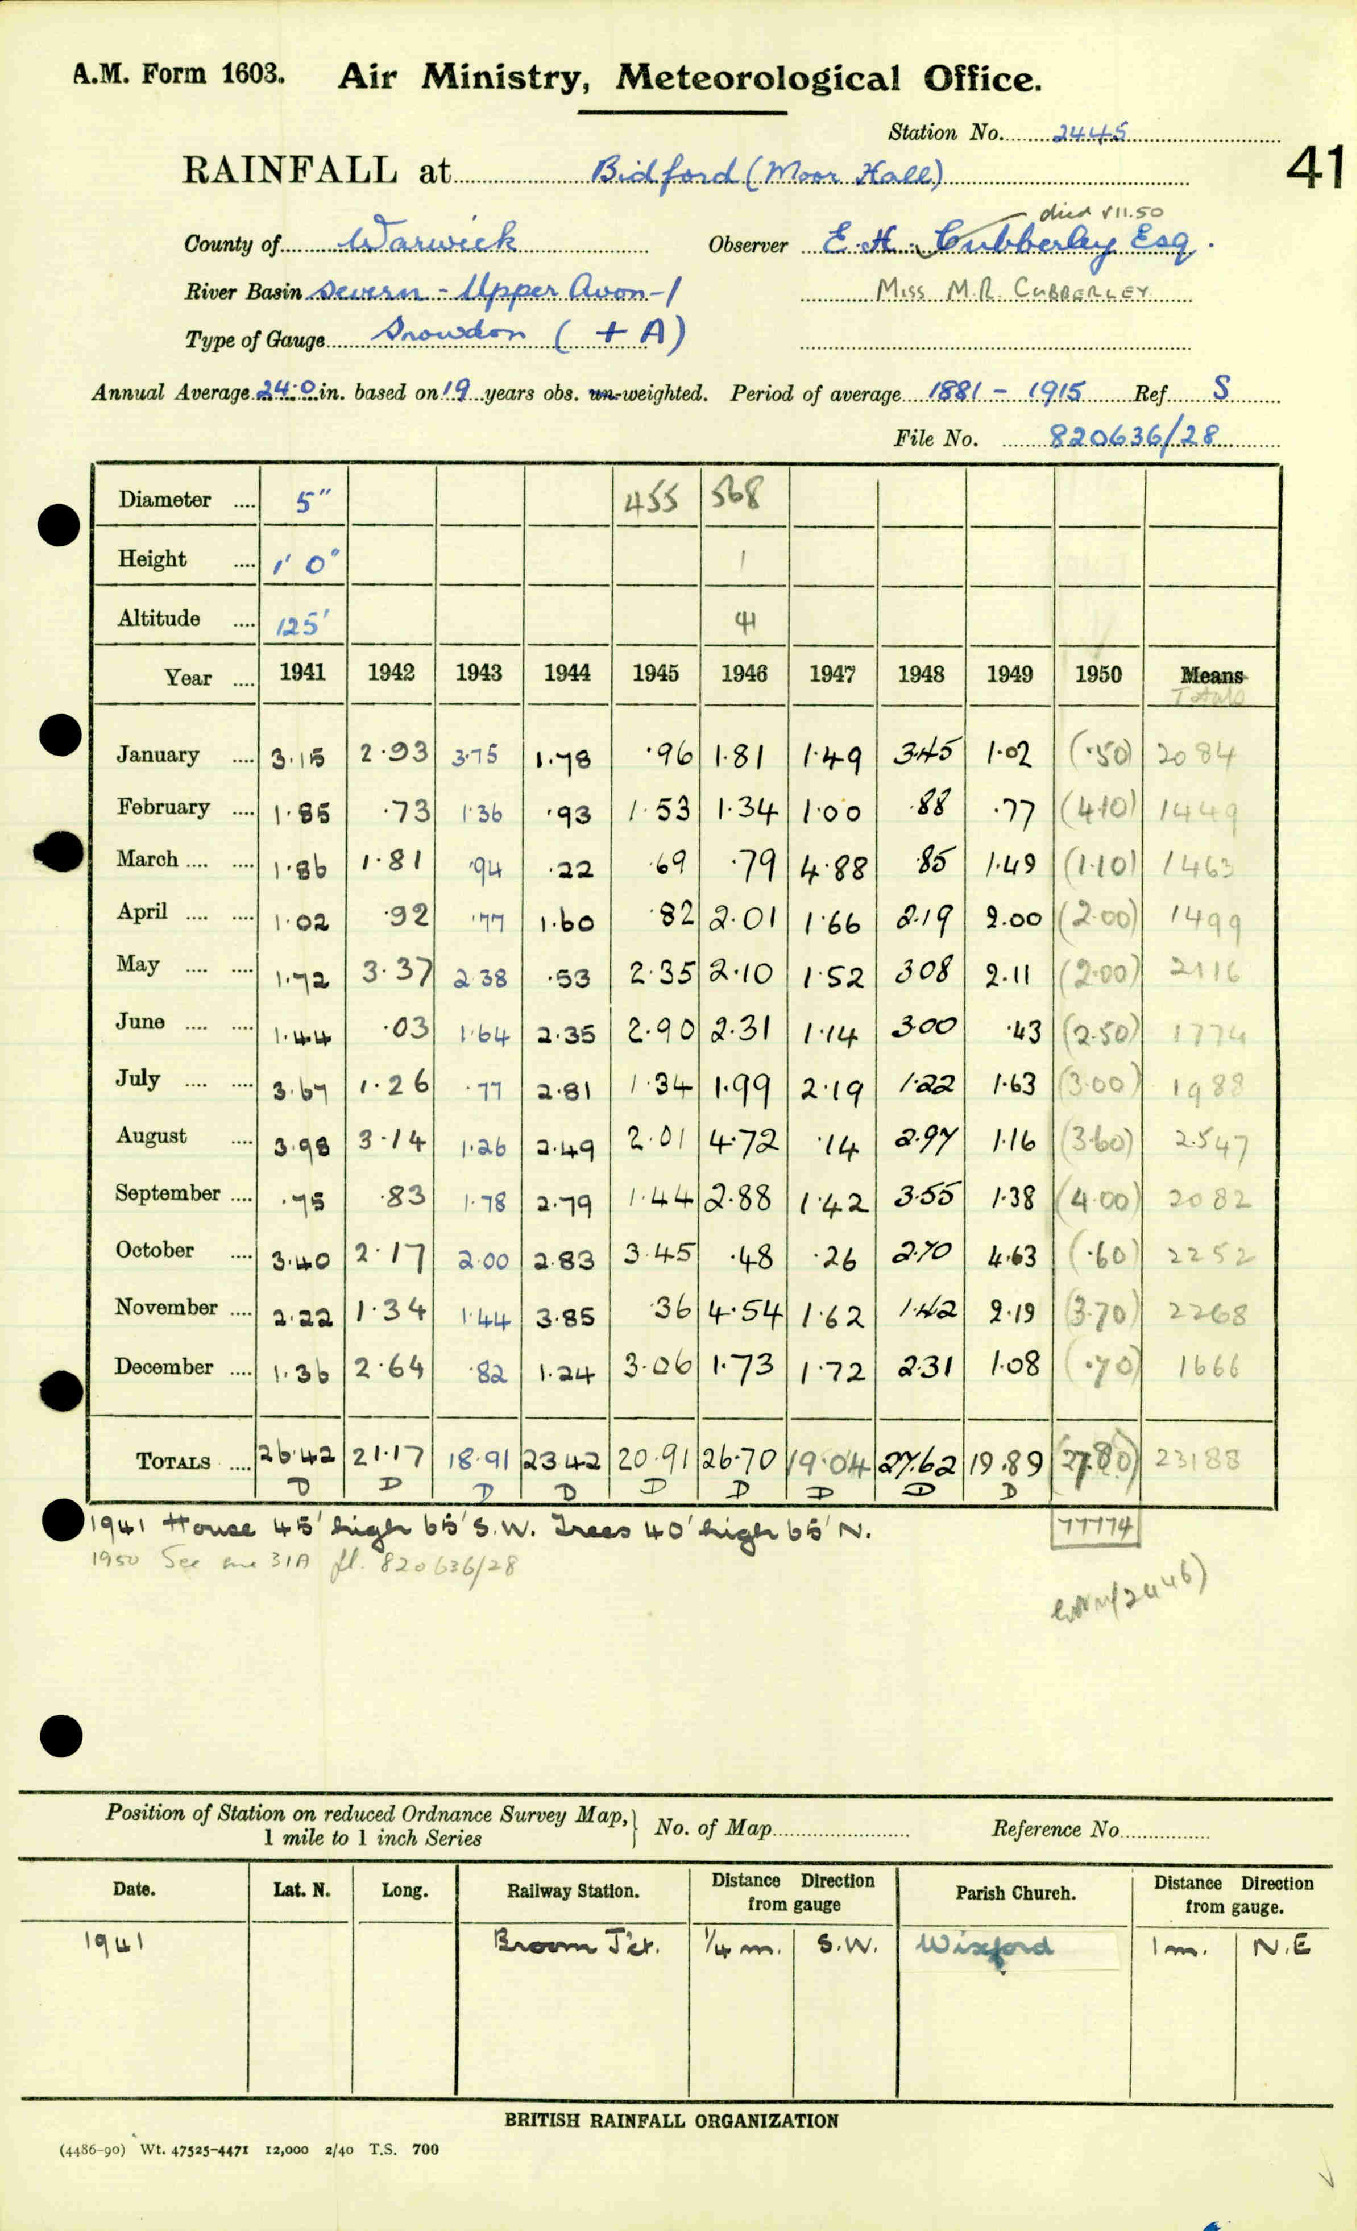 A.M. Form 1603. Air Ministry, Meteorological Office.
Station No. 2445
41
RAINFALL at Bidford (Moor Hall)
died 8 11.50
County of Warwick Observer E.H. Cubberley Esq.
River Basin Severn - Upper Avon - 1 Miss M.R. CUBBERLEY
Type of Gauge Snowdon ( + A)
Annual Average 24.0 in. based on 19 years obs. un-weighted. Period of average 1881 - 1915 Ref S
File No. 820636/28
Diameter .... 5" 455 568
Height .... 1' 0" 1
Altitude .... 125' 41
Year .... 1941 1942 1943 1944 1945 1946 1947 1948 1949 1950 Means
Totals
January .... 3.15 2.93 3.75 1.78 .96 1.81 1.49 3.45 1.02 (.50) 2084
February .... 1.85 .73 1.36 .93 1.53 1.34 1.00 .88 .77 (4.10) 1449
March .... .... 1.86 1.81 .94 .22 .69 .79 4.88 .85 1.49 (1.10) 1463
April .... .... 1.02 .92 .77 1.60 .82 2.01 1.66 2.19 2.00 (2.00) 1499
May .... .... 1.72 3.37 2.38 .53 2.35 2.10 1.52 3.08 2.11 (2.00) 2116
June .... .... 1.44 .03 1.64 2.35 2.90 2.31 1.14 3.00 .43 (2.50) 1774
July .... .... 3.67 1.26 .77 2.81 1.34 1.99 2.19 1.22 1.63 (3.00) 1988
August .... 3.98 3.14 1.26 2.49 2.01 4.72 .14 2.97 1.16 (3.60) 2547
September .... .75 .83 1.78 2.79 1.44 2.88 1.42 3.55 1.38 (4.00) 2082
October .... 3.40 2.17 2.00 2.83 3.45 .48 .26 2.70 4.63 (.60) 2252
November .... 2.22 1.34 1.44 3.85 .36 4.54 1.62 1.42 2.19 (3.70) 2268
December .... 1.36 2.64 .82 1.24 3.06 1.73 1.72 2.31 1.08 (.70) 1666
TOTALS .... 26.42 21.17 18.91 23.42 20.91 26.70 19.04 27.62 19.89 (27.80) 23188
D D D D D D D D D
1941 House 45' high 65' S.W. Trees 40' high 65' N. 77774
1950 See enc 31A fl. 820636/28
(2446)
Position of Station on reduced Ordnance Survey Map, 1 mile to 1 inch Series } No. of Map Reference No
Date. Lat. N. Long. Railway Station. Distance Direction from gauge Parish Church. Distance Direction from gauge.
1941 Broom Jct. 1/4 m. S.W. Wixford 1 m. N.E
BRITISH RAINFALL ORGANIZATION
(4486-90) Wt. 47525-4471 12,000 2/40 T.S. 700